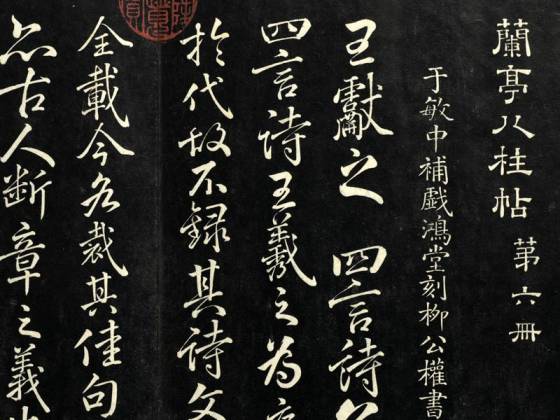 蘭亭八柱帖 第六冊
于敏中補戲鴻堂刻柳公權書
王獻之 四言詩
四言詩王羲之為序
於代故不錄其詩文
全載今各裁其佳句
古人斷章之義也